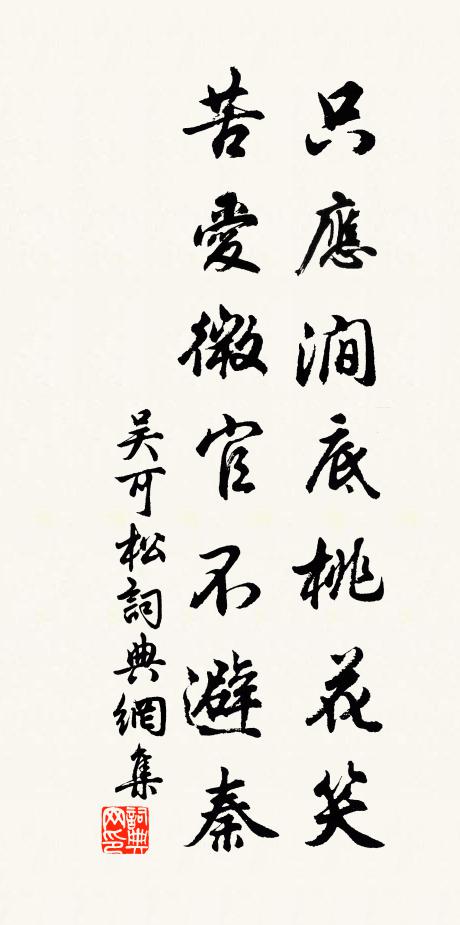 只應澗底桃花笑
苦愛微官不避秦
吴可松詞典網集
詞典網印